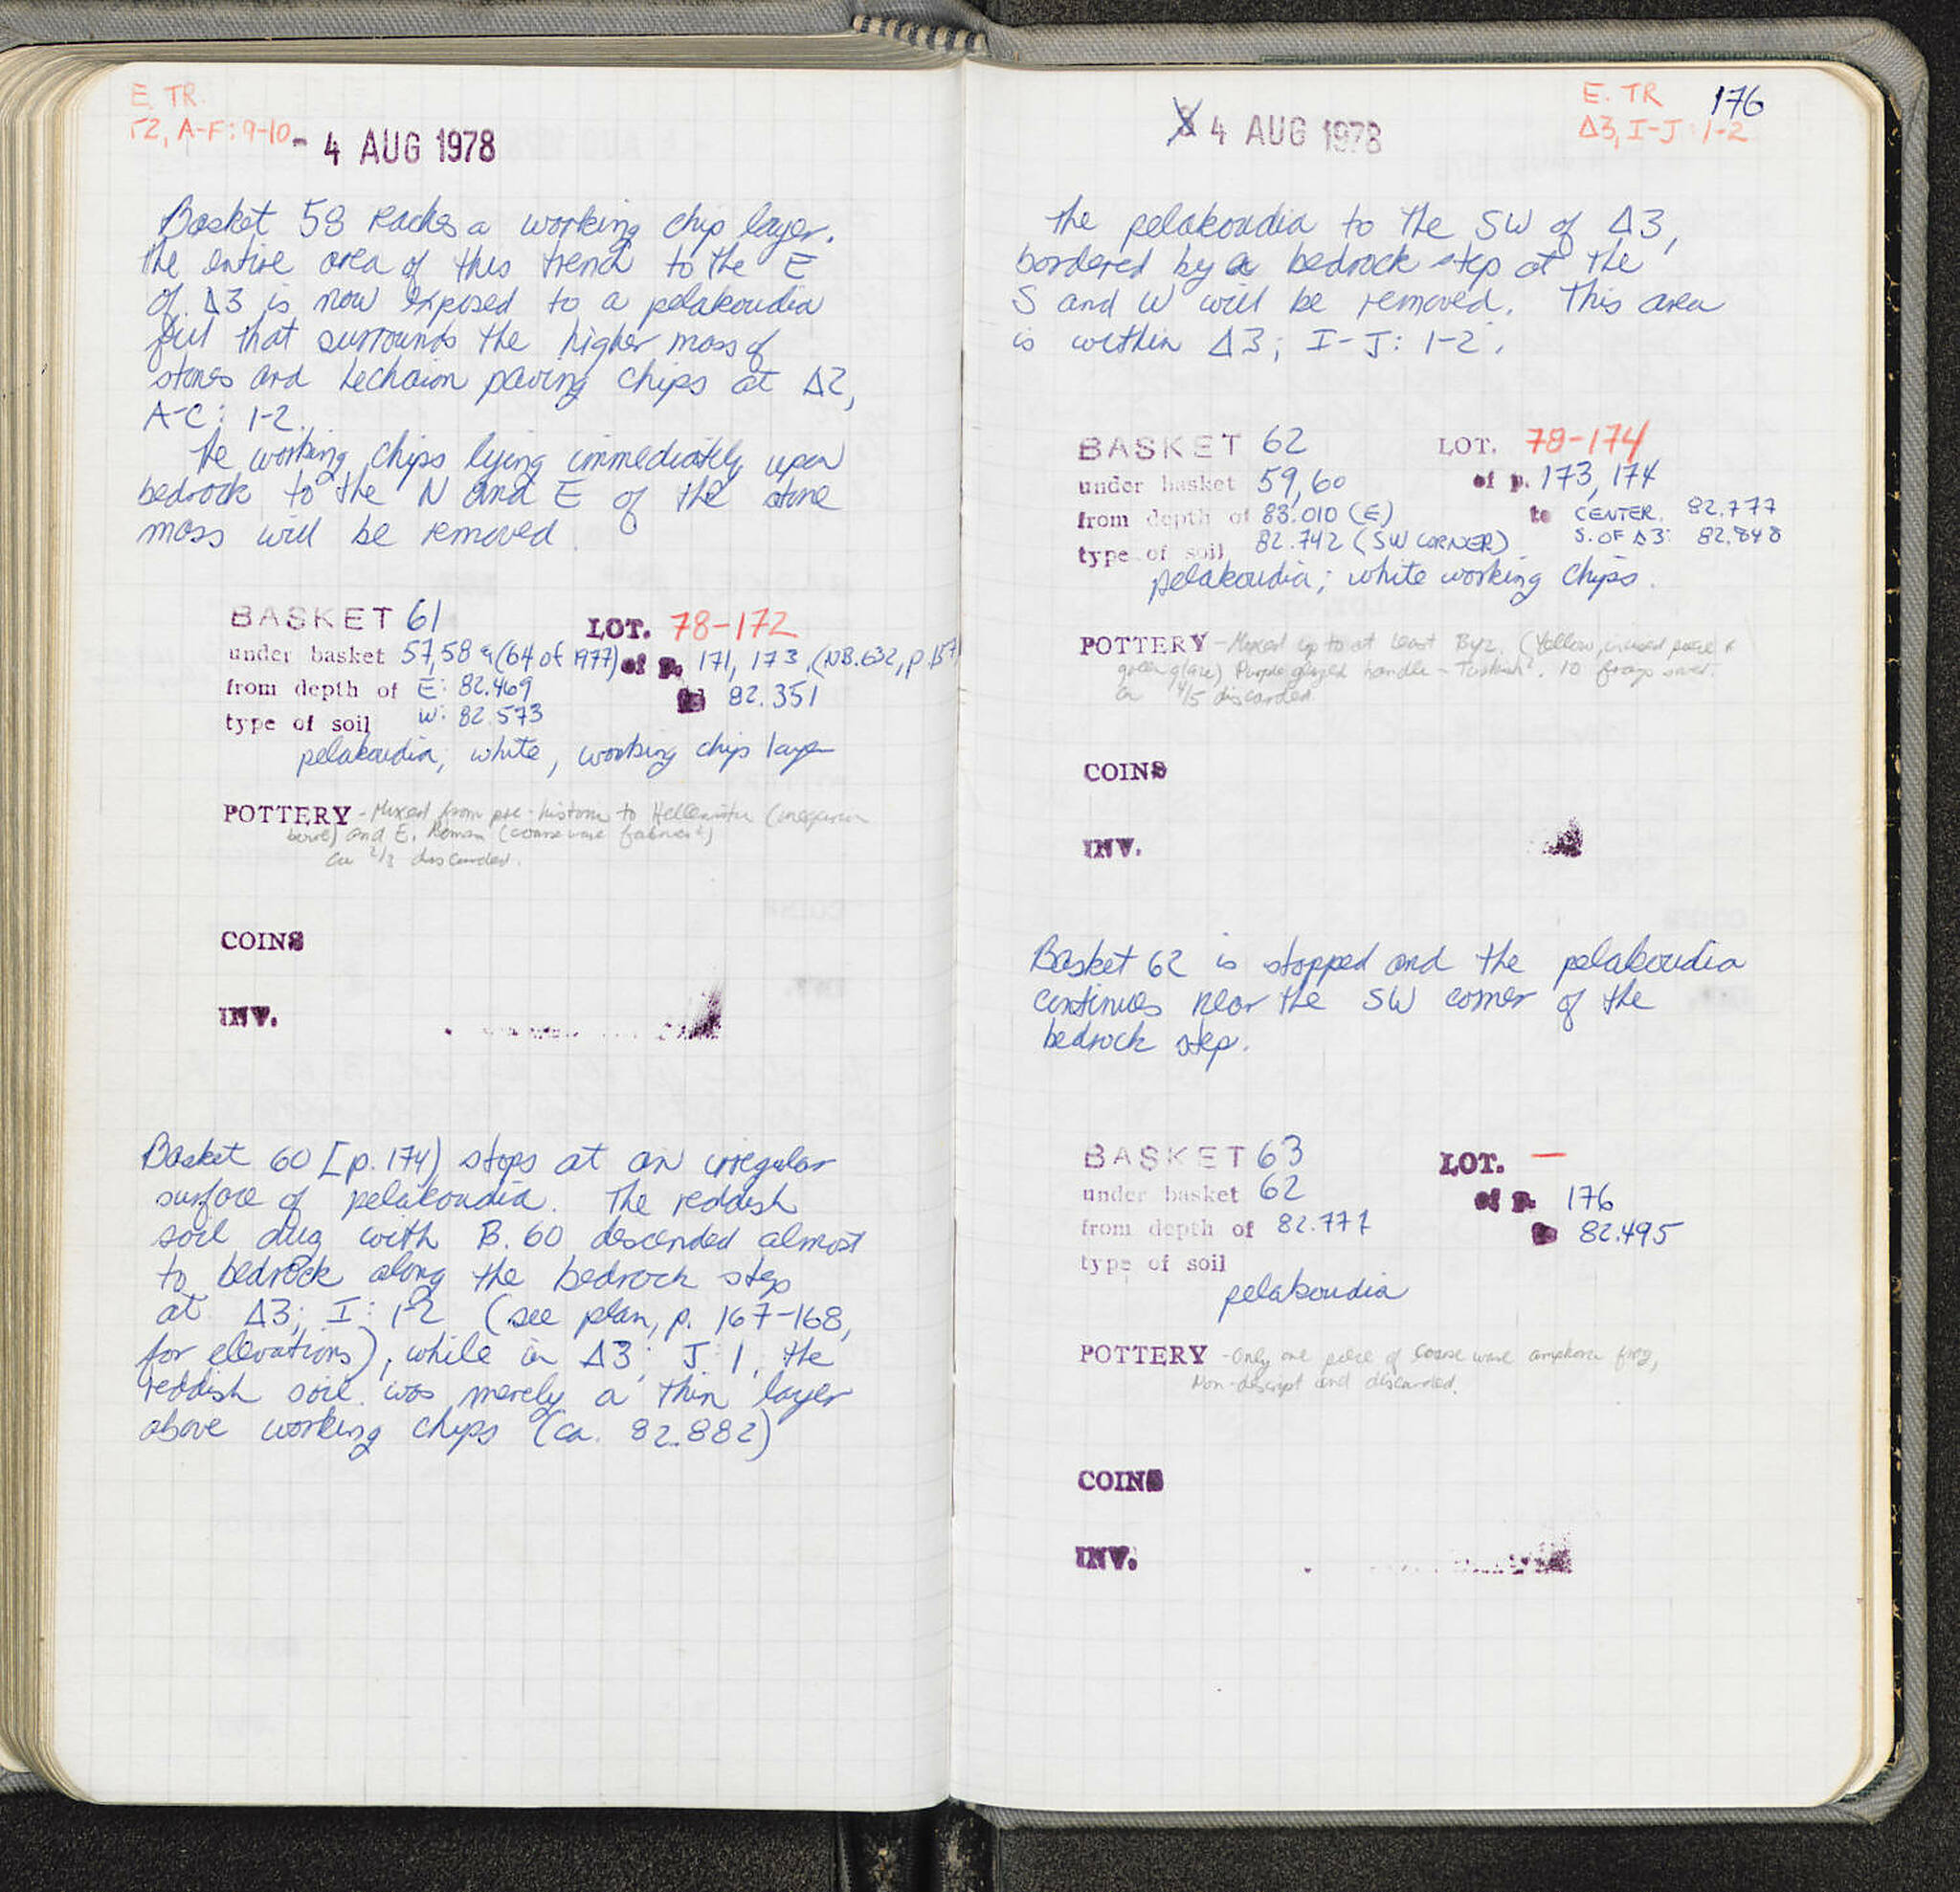 E. TR.
Γ2, A-F: 9-10
- 4 AUG 1978
Basket 58 reaches a working chip layer.
The entire area of this trench to the E
of Δ3 is now exposed to a pelakoudia
fill that surrounds the higher mass of
stones and Lechaion paving chips at Δ2,
A-C: 1-2.
The working chips lying immediately upon
bedrock to the N and E of the stone
mass will be removed.
BASKET 61 LOT. 78-172
under basket 57,58 & (64 of 1977) of p. 171, 173, (NB.632, p.157)
from depth of E: 82.469 to 82.351
W: 82.573
type of soil
pelakoudia, white, working chip layer
POTTERY - Mixed from pre-historic to Hellenistic (megarian
bowl) and E. Roman (coarse ware fabrics)
ca 2/3 discarded.
COINS
INV.
Basket 60 [p. 174) stops at an irregular
surface of pelakoudia. The reddish
soil dug with B. 60 descended almost
to bedrock along the bedrock step
at Δ3; I: 1-2 (see plan, p. 167-168,
for elevations), while in Δ3; J: 1, the
reddish soil was merely a thin layer
above working chips (ca. 82.882)
4 AUG 1978
E. TR 176
Δ3, I-J: 1-2
The pelakoudia to the SW of Δ3,
bordered by a bedrock step at the
S and W will be removed. This area
is within Δ3; I-J: 1-2.
BASKET 62 LOT. 78-174
under basket 59,60 of p. 173, 174
from depth of 83.010 (E) to CENTER. 82.777
82.742 (SW CORNER) S. OF Δ3: 82.848
type of soil
pelakoudia; white working chips.
POTTERY - Mixed up to at least Byz. (Yellow, incised piece &
green glaze) Purple glazed handle - Turkish?. 10 frags saved.
ca 4/5 discarded.
COINS
INV.
Basket 62 is stopped and the pelakoudia
continues near the SW corner of the
bedrock step.
BASKET 63 LOT. —
under basket 62 of p. 176
from depth of 82.777 to 82.495
type of soil
pelakoudia
POTTERY - Only one piece of coarse ware amphora frag,
Non-descript and discarded.
COINS
INV.